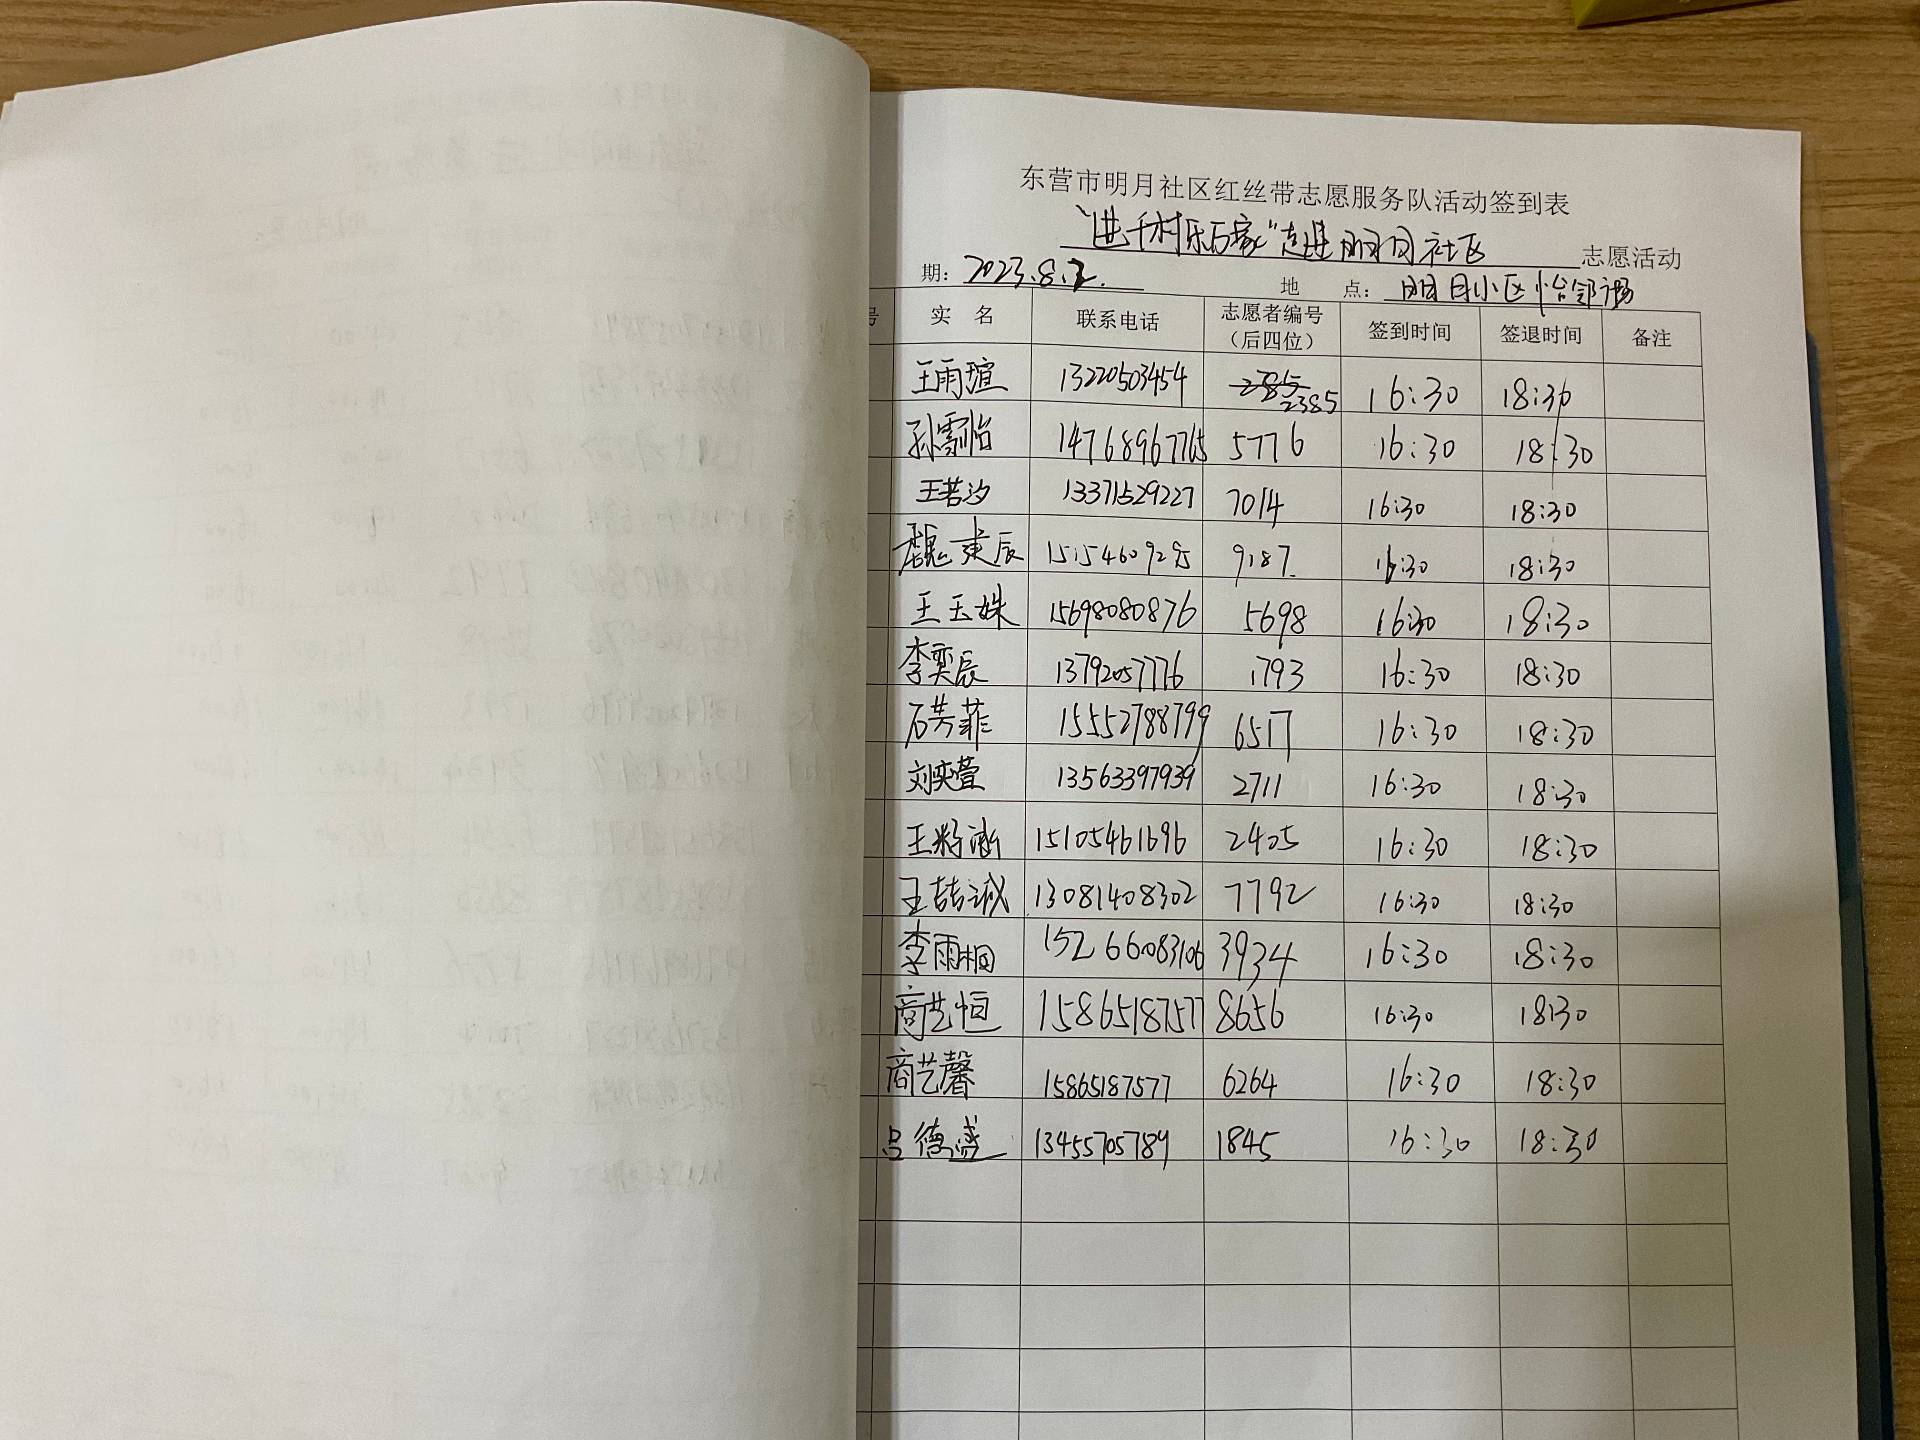 东营市明月社区红丝带志愿服务队活动签到表
“进千村乐百家”走进明月社区 志愿活动
期：2023.8.2. 地 点：明月小区怡邻场
号 实 名 联系电话 志愿者编号（后四位） 签到时间 签退时间 备注
王雨瑄 13220503454 2385 16:30 18:30
孙雪怡 14768967765 5776 16:30 18:30
王若汐 13371529227 7014 16:30 18:30
魏建辰 15154609295 9187 16:30 18:30
王玉姝 15698080876 5698 16:30 18:30
李奕辰 13792057776 1793 16:30 18:30
石芳菲 15552788799 6517 16:30 18:30
刘奕萱 13563397939 2711 16:30 18:30
王籽涵 15105461696 2405 16:30 18:30
王喆诚 13081408302 7792 16:30 18:30
李雨桐 15266083106 3934 16:30 18:30
商艺恒 15865187577 8656 16:30 18:30
商艺馨 15865187577 6264 16:30 18:30
吕德盛 13455705789 1845 16:30 18:30